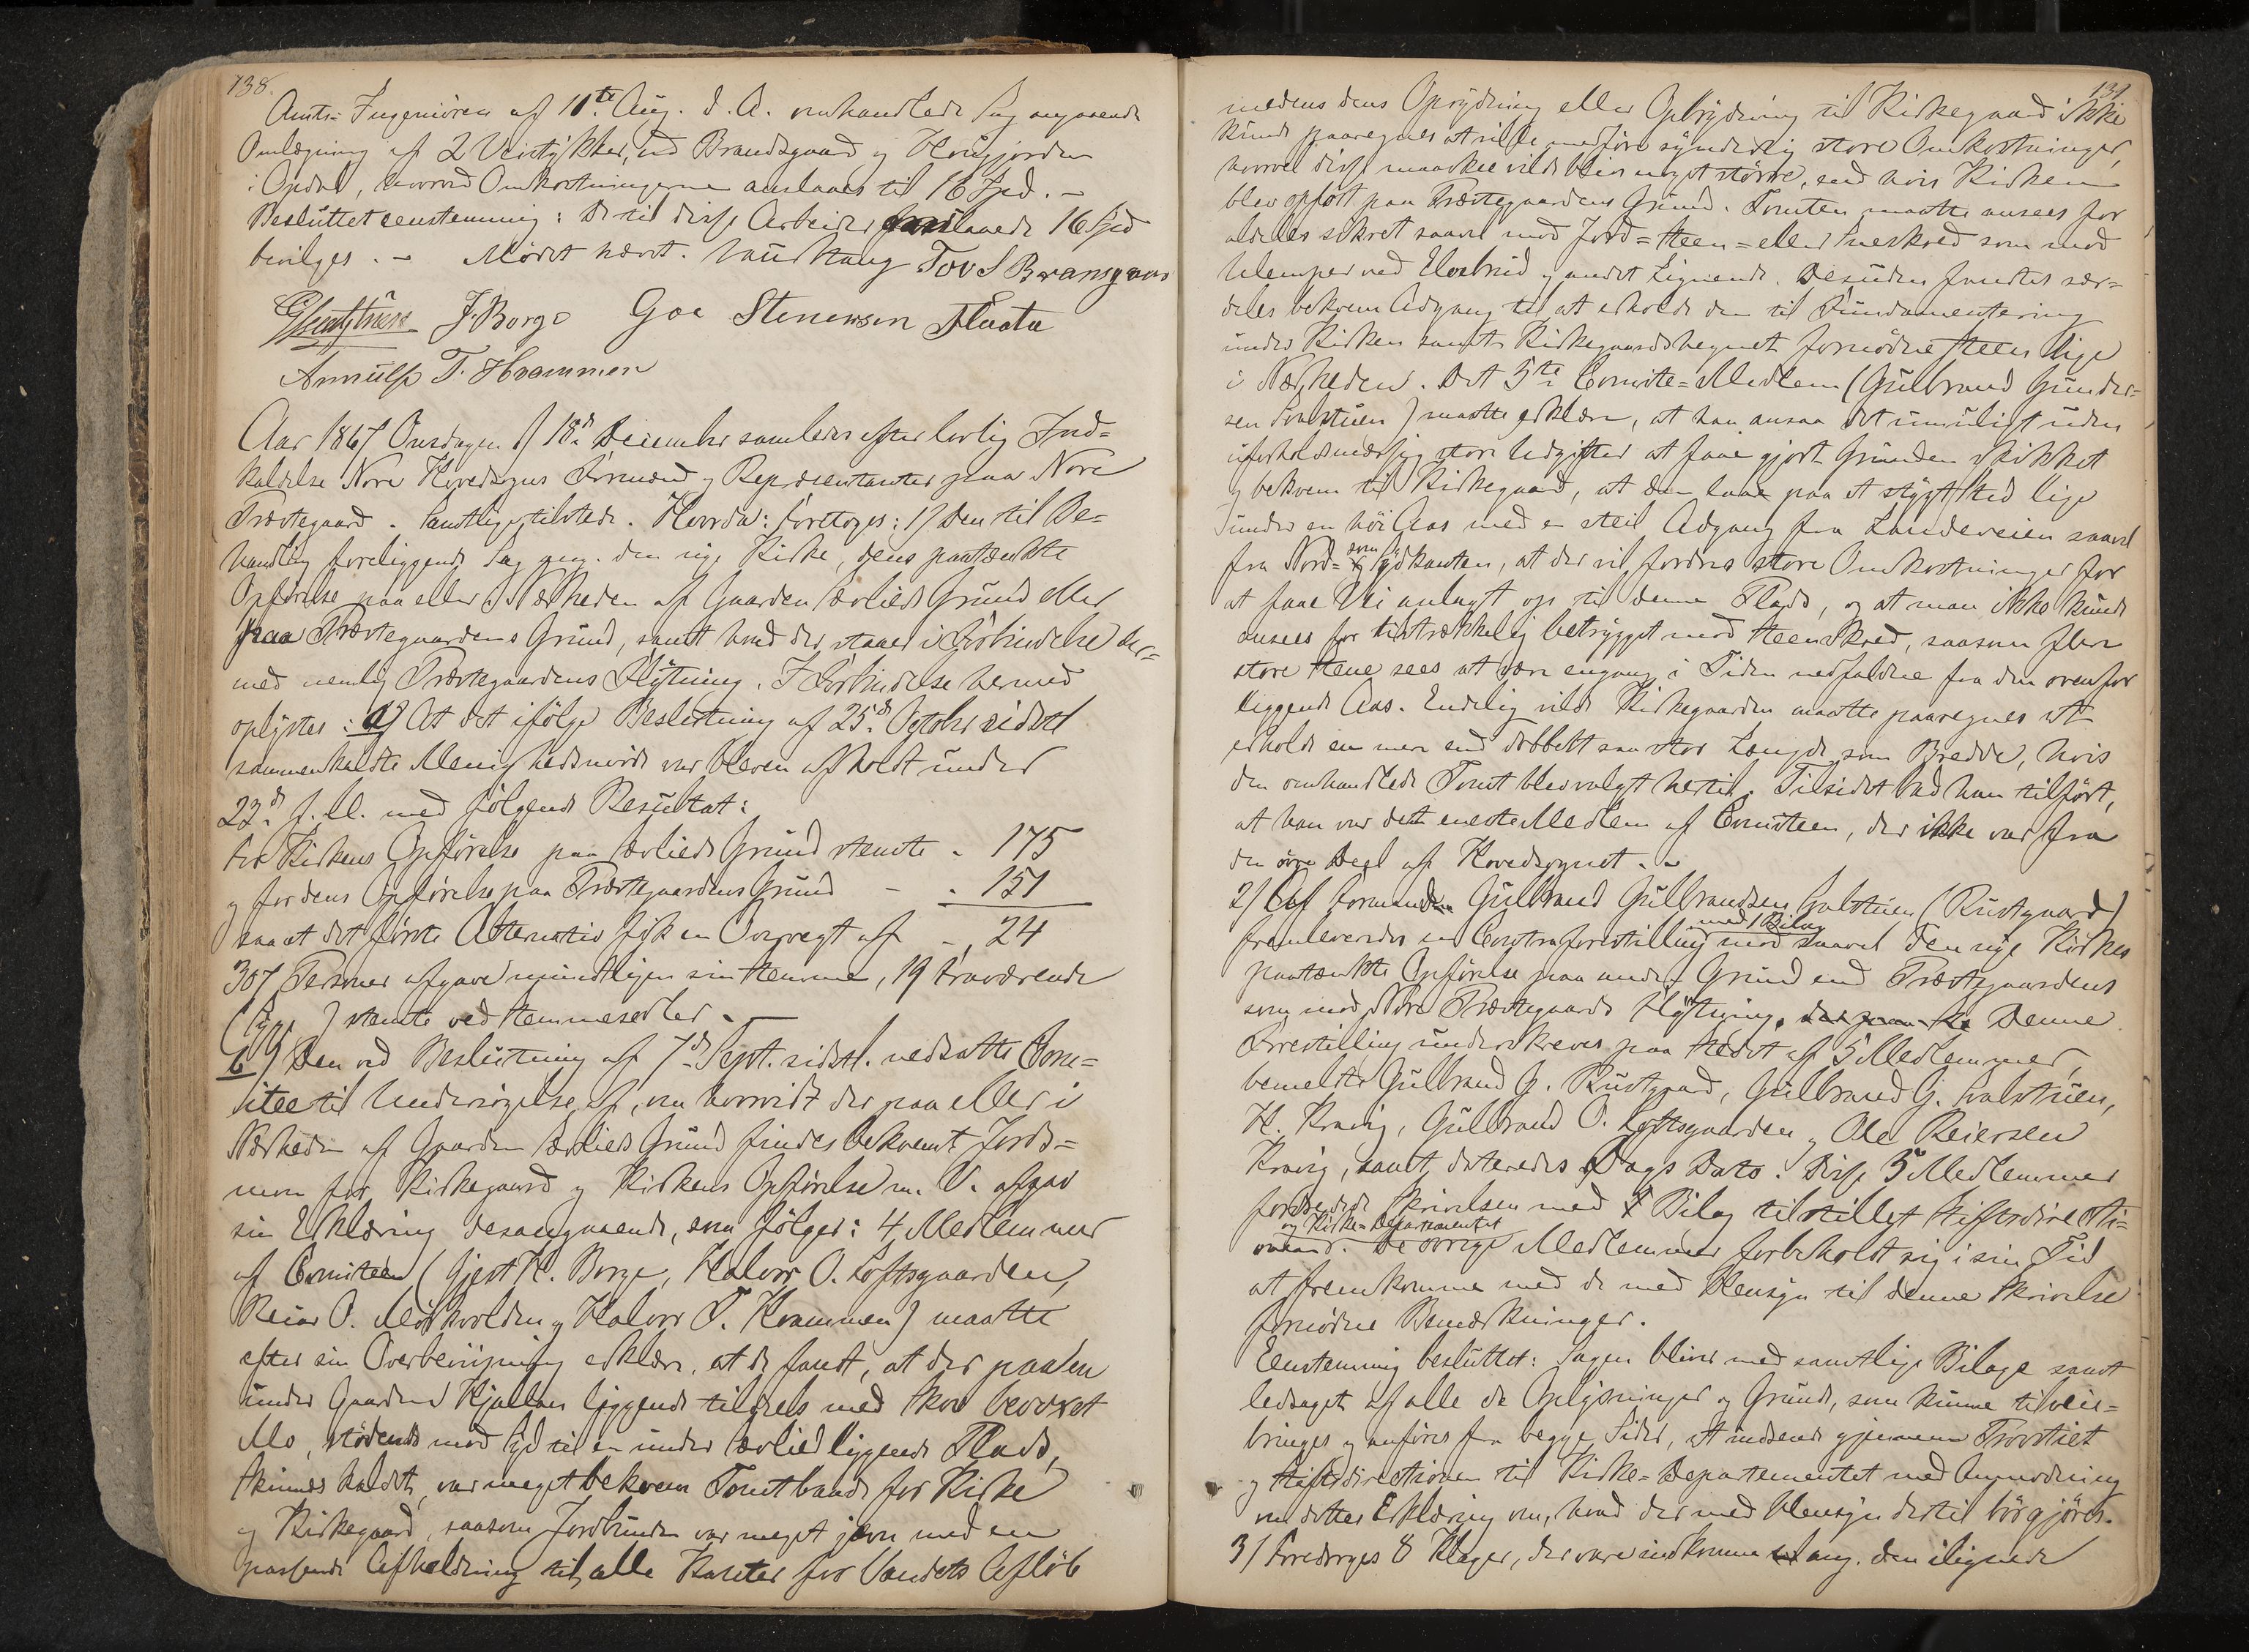 138.
Amts-Ingeniören af 10te Aug. d. A. omhandlede Sag angaaende
Omlægning af 2 Veistykker, ved Brandsgaard og
i Opdal, hvorved Omkostningerne anslaaes til 16 Spd. -
Besluttet eenstemmig: De til disse Arbeider anslaaede 16 Spd
bevilges. - Mödet hævet. Tov S Bransgaar
J. Borge Goe Stenersen Flaata
T. Hrammen
Aar 1867 Onsdagen d 18de December samledes efter lovlig Ind-
kaldelse Nore Hovedsogns Formænd og Repræsentanter paa Nore
Præstegaard. Samtlige tilstede. Hvorda: foretoges: 1) Den til Be-
handling foreliggende Sag ang. den nye Kirke, dens paatænkte
Opförelse paa eller i Nærheden af Gaarden Evlieds Grund eller
paa Præstegaardens Grund, samt hvad der staaer i Forbindelse der-
med nemlig Præstegaardens Flytning. I Forbindelse hermed
oplystes: a) At det ifölge Beslutning af 25de October sidstl
sammenkaldte Menighedsmöde var bleven afholdt under
23de f. M. med fölgende Resultat:
for Kirkens Opförelse paa Evlieds Grund stemte - 175
og for dens Opförelse paa Præstegaardens Grund - - 151
saa at det förste Alternativ fik en Overvegt af - 24
307 Personer afgave mundtligen sin Stemme, 19 fraværende
stemte ved Stemmesedler. -
b) Den ved Beslutning af 7de Sept. sidstl. nedsatte Com-
itee til Undersögelse af, om hvorvidt der paa eller i
Nærheden af Gaarden Evlieds Grund findes bekvemt Jords-
mon for Kirkegaard og Kirkens Opförelse m. V. afgav
sin Erklæring desangaaende, som fölger: 4 Medlemmer
af Comiteen (Gjest H. Borge, Halvor O. Loftsgaarden,
Reiar O. Mörkvolden og Halvor T. Hrammen) maatte
efter sin Overbeviisning erklære, at de fandt, at der paa en
under Gaarden Kjallaen liggende tildeels med Skov bevoxet
Mo, stödende mod Syd til en under Evlied liggende Plads,
kaldet, var meget bekvem Tomt baade for Kirke
og Kirkegaard, saasom Jordbunden var meget jevn med en
passende Afheldning til alle Kanter for Vandets Aflöb
139
medens dens Oprydning eller Opbrydning til Kirkegaard ikke
kunde paaregnes at ville medföre synderlig store Omkostninger,
hvorvel disse maaskee vilde blive noget större, end hvis Kirken
blev opfört paa Præstegaardens Grund. Tomten maatte ansees for
aldeles sikret saavel mod Jord- Steen- eller Sneeskred som mod
Ulemper ved Elvebrud og andet Lignende. Desuden fandtes sær-
deles bekvem Adgang til at erholde den til Fundamentering
under Kirken samt Kirkegaardshegnet fornödne Steen lige
i Nærheden. Det 5te Comite-Medlem (Gulbrand Gunder-
sen Svalstuen) maatte erklære, at han ansaa det umuligt uden
uforholdsmæssig store Udgifter at faae gjort Grunden skikket
og bekvem til Kirkegaard, at den laae paa et stygt Sted lige
under en höi Aas med en steil Adgang fra Landeveien saavel
fra Nord- som Sydkanten, at der vil fordres store Omkostninger for
at faae Vei anlagt op til denne Plads, og at man ikke kunde
ansees for tilstrækkelig betrygget mod Steenskred, saasom flere
store Stene sees at være engang i Tiden nedfaldne fra den ovenfor
liggende Aas. Endelig vilde Kirkegaarden maatte paaregnes at
erholde en mere end dobbelt saa stor Længde som Bredde, hvis
den omhandlede Tomt blev valgt hertil. Tilsidst bad han tilfört,
at han var det eneste Medlem af Comiteen, der ikke var fra
den övre Deel af Hovedsognet. -
2) Af Formanden Gulbrand Gulbrandsen Svalstuen (Rustgaard)
fremleveredes en Contraforestilling med 1 Bilag mod saavel den nye Kirkes
paatænkte Opförelse paa anden Grund end Præstegaardens
som mod Nore Præstegaards Flytning. Denne
Forestilling underskreves paa Stedet af 5 Medlemmer,
bemeldte Gulbrand G. Rustgaard, Gulbrand G. Svalstuen,
H. Kravig, Gulbrand O. Loftsgaarden og Ole Reiersen
Kravig, samt dateredes Dags Dato. Disse 5 Medlemmer
fordrede Skrivelsen med Bilag tilstillet Stiftsdirecti-
onen og Kirke-Departementet. De övrige Medlemmer forbeholdt sig i sin Tid
at fremkomme med de med Hensyn til denne Skrivelse
fornödne Bemærkninger.
Eenstemmig besluttet: Sagen bliver med samtlige Bilage samt
ledsaget af alle de Oplysninger og Grunde, som kunne tilveie-
bringes og anföres fra begge Sider, at indsende gjennem Provstiet
og Stiftsdirectionen til Kirke-Departementet med Anmodning
om dettes Erklæring om, hvad der med Hensyn dertil bör gjöres.
3) Foredroges 8 Klager, der vare indkomne ang. den ilignede